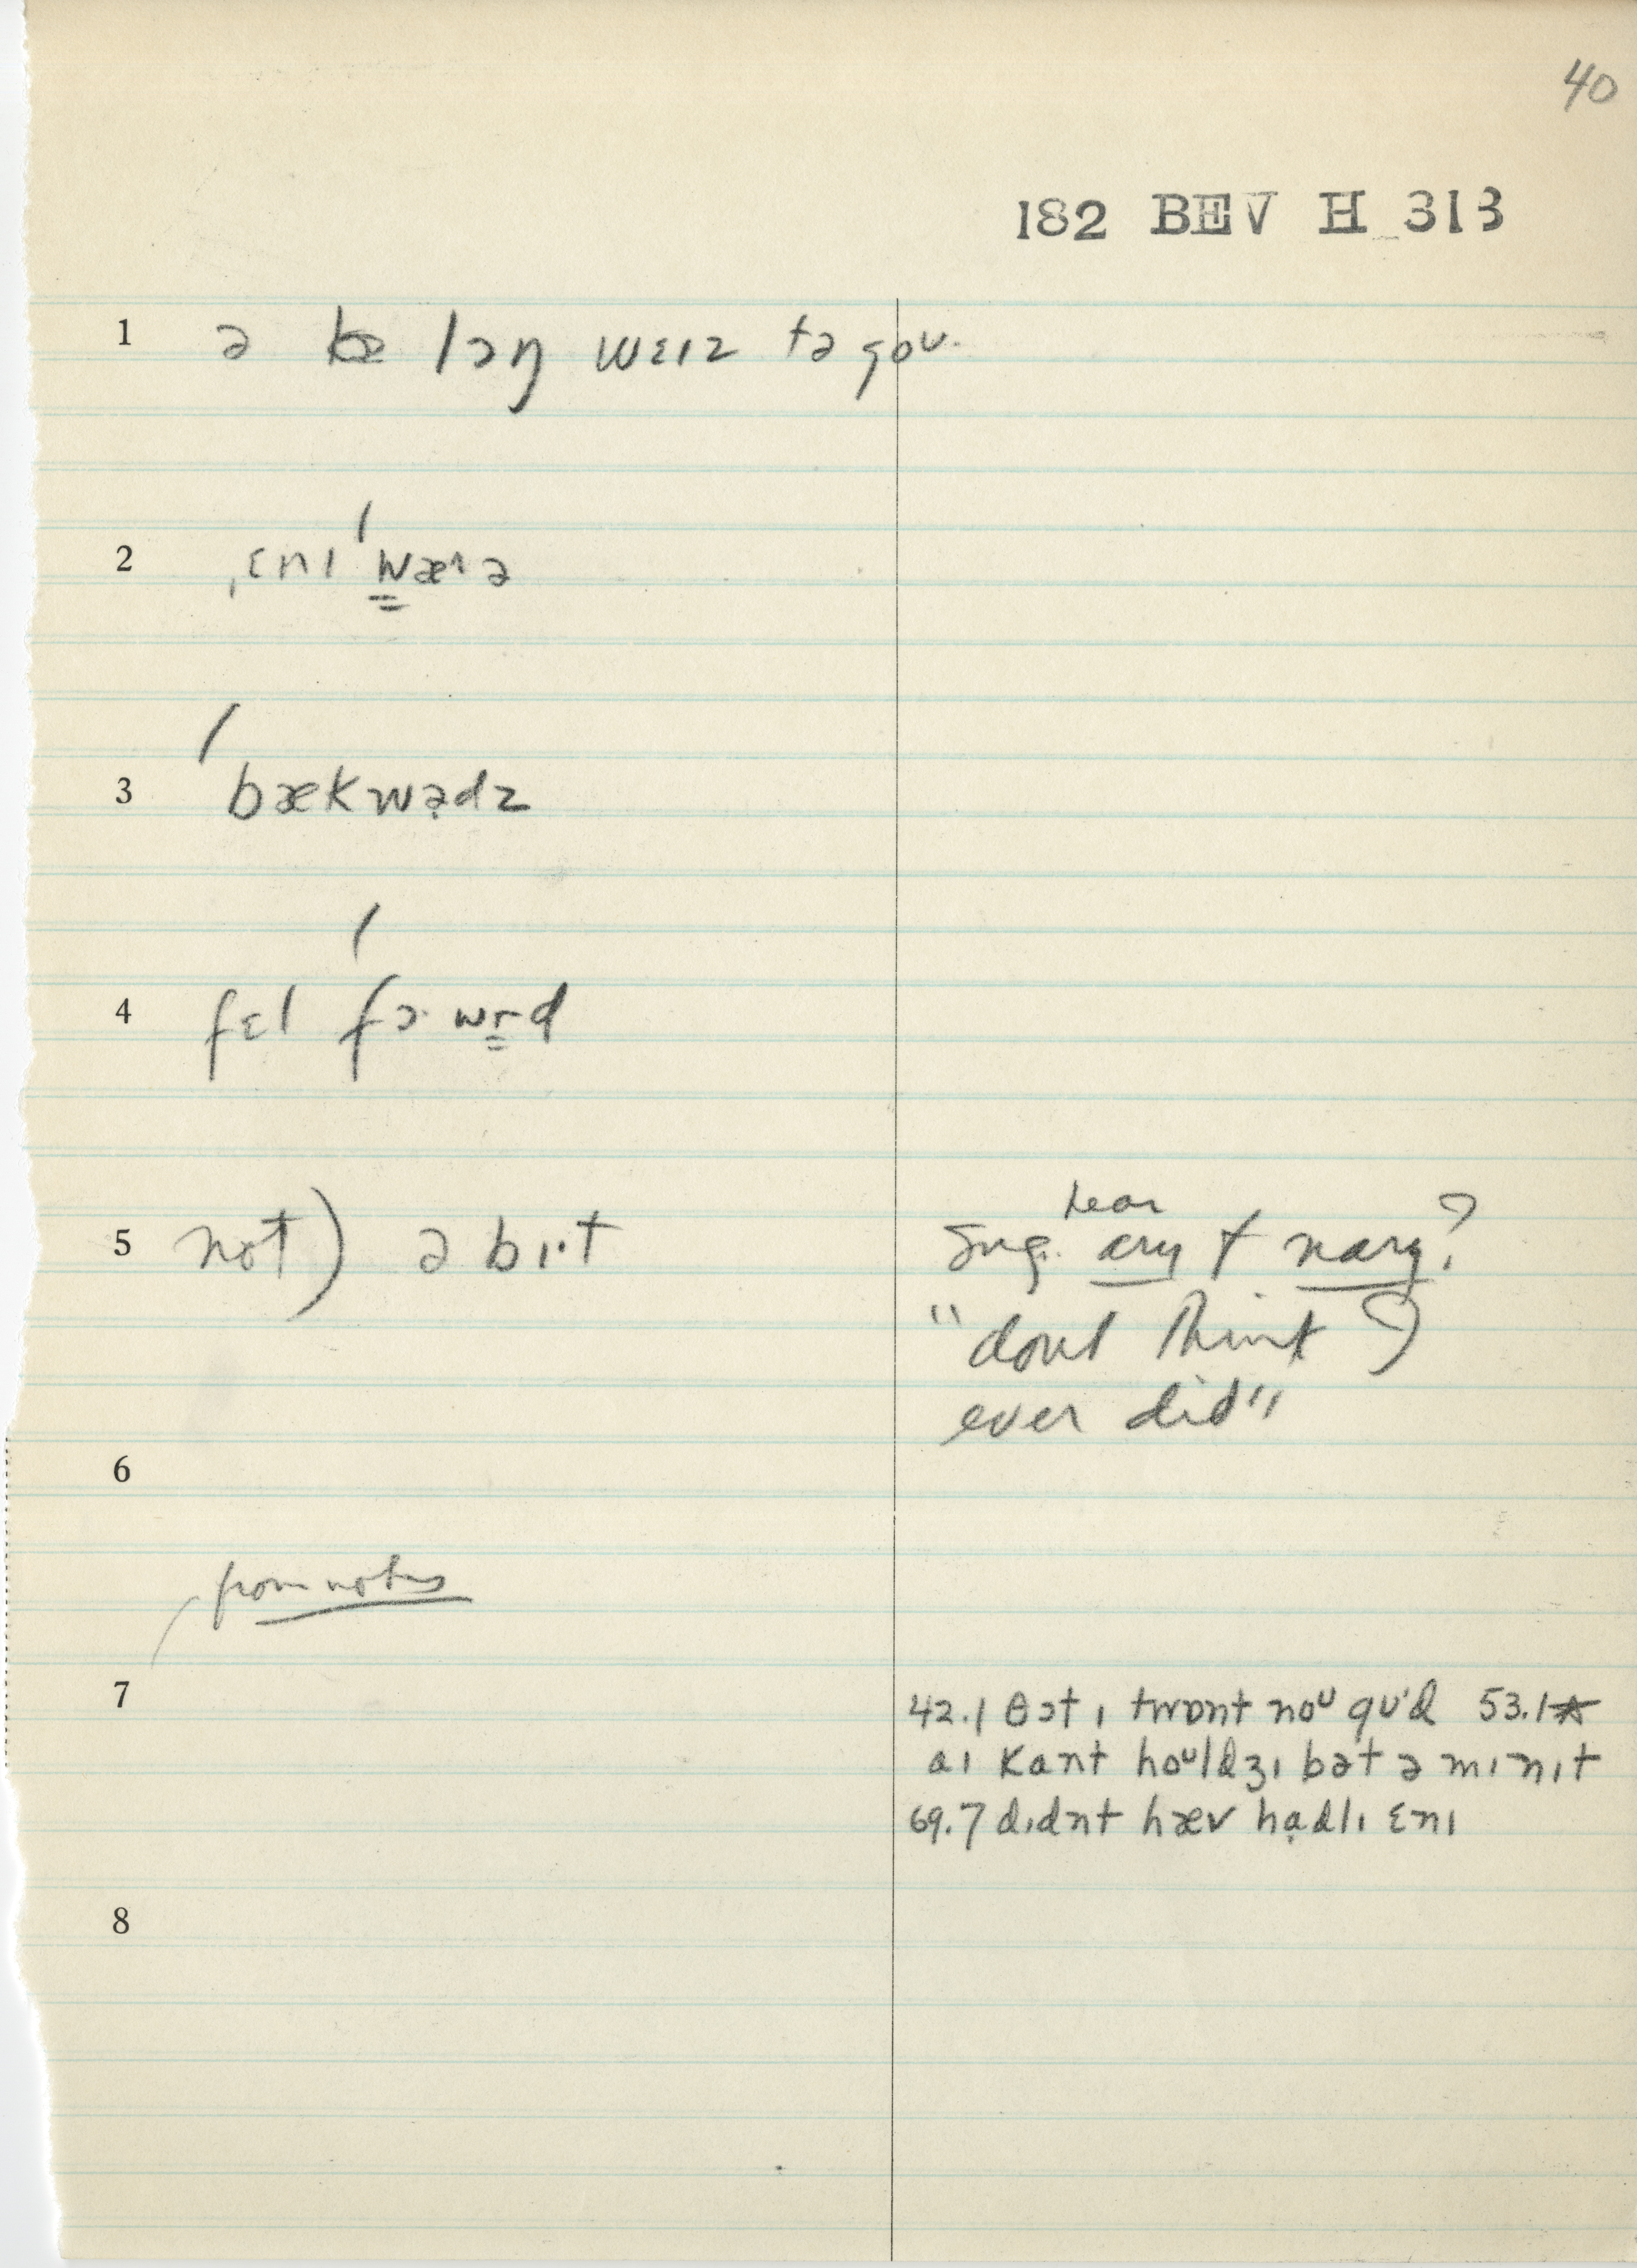 40
182 BEV H 313
1 ə lɔŋ wɛɪz tə goʊ.
2 ˌɛnɪ ˈwæɪə
3 ˈbækwə̣dz
4 fɛl ˈfɔ·wr̳d
5 not) ə bɪ·t
hear
Sug. ary + nary?
"dont think I
ever did"
6
from notes
7
42.1 θɔt ɪ twɒnt noᵁ gʊᵊd 53.1*
aɪ kant hoᵁldʒɪ bət ə mɪnɪt
69.7 dɪdnt hæv hạdlɪ ɛnɪ
8